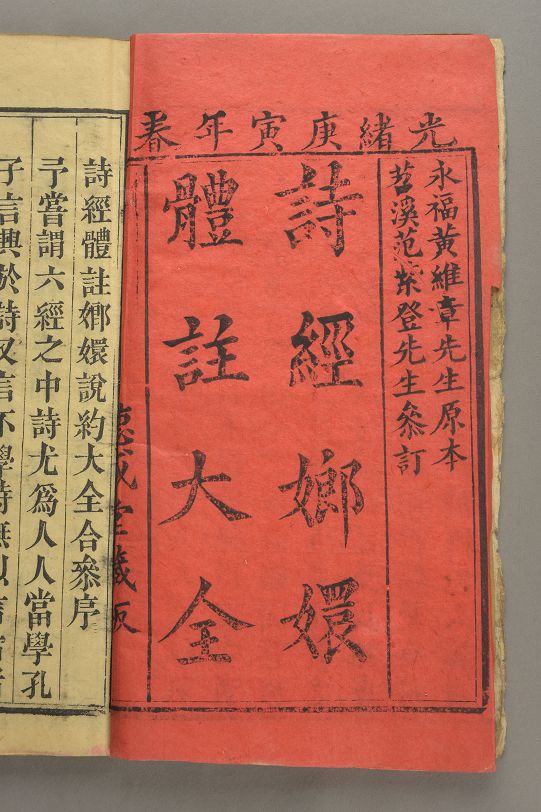 光緒庚寅年春
永福黃維章先生原本
苕溪范紫登先生叅訂
詩經嫏嬛
體註大全
德成堂藏板
詩經體註嫏嬛說約大全合叅序
予嘗謂六經之中詩尤爲人人當學孔
子言興於詩又言不學詩無以言